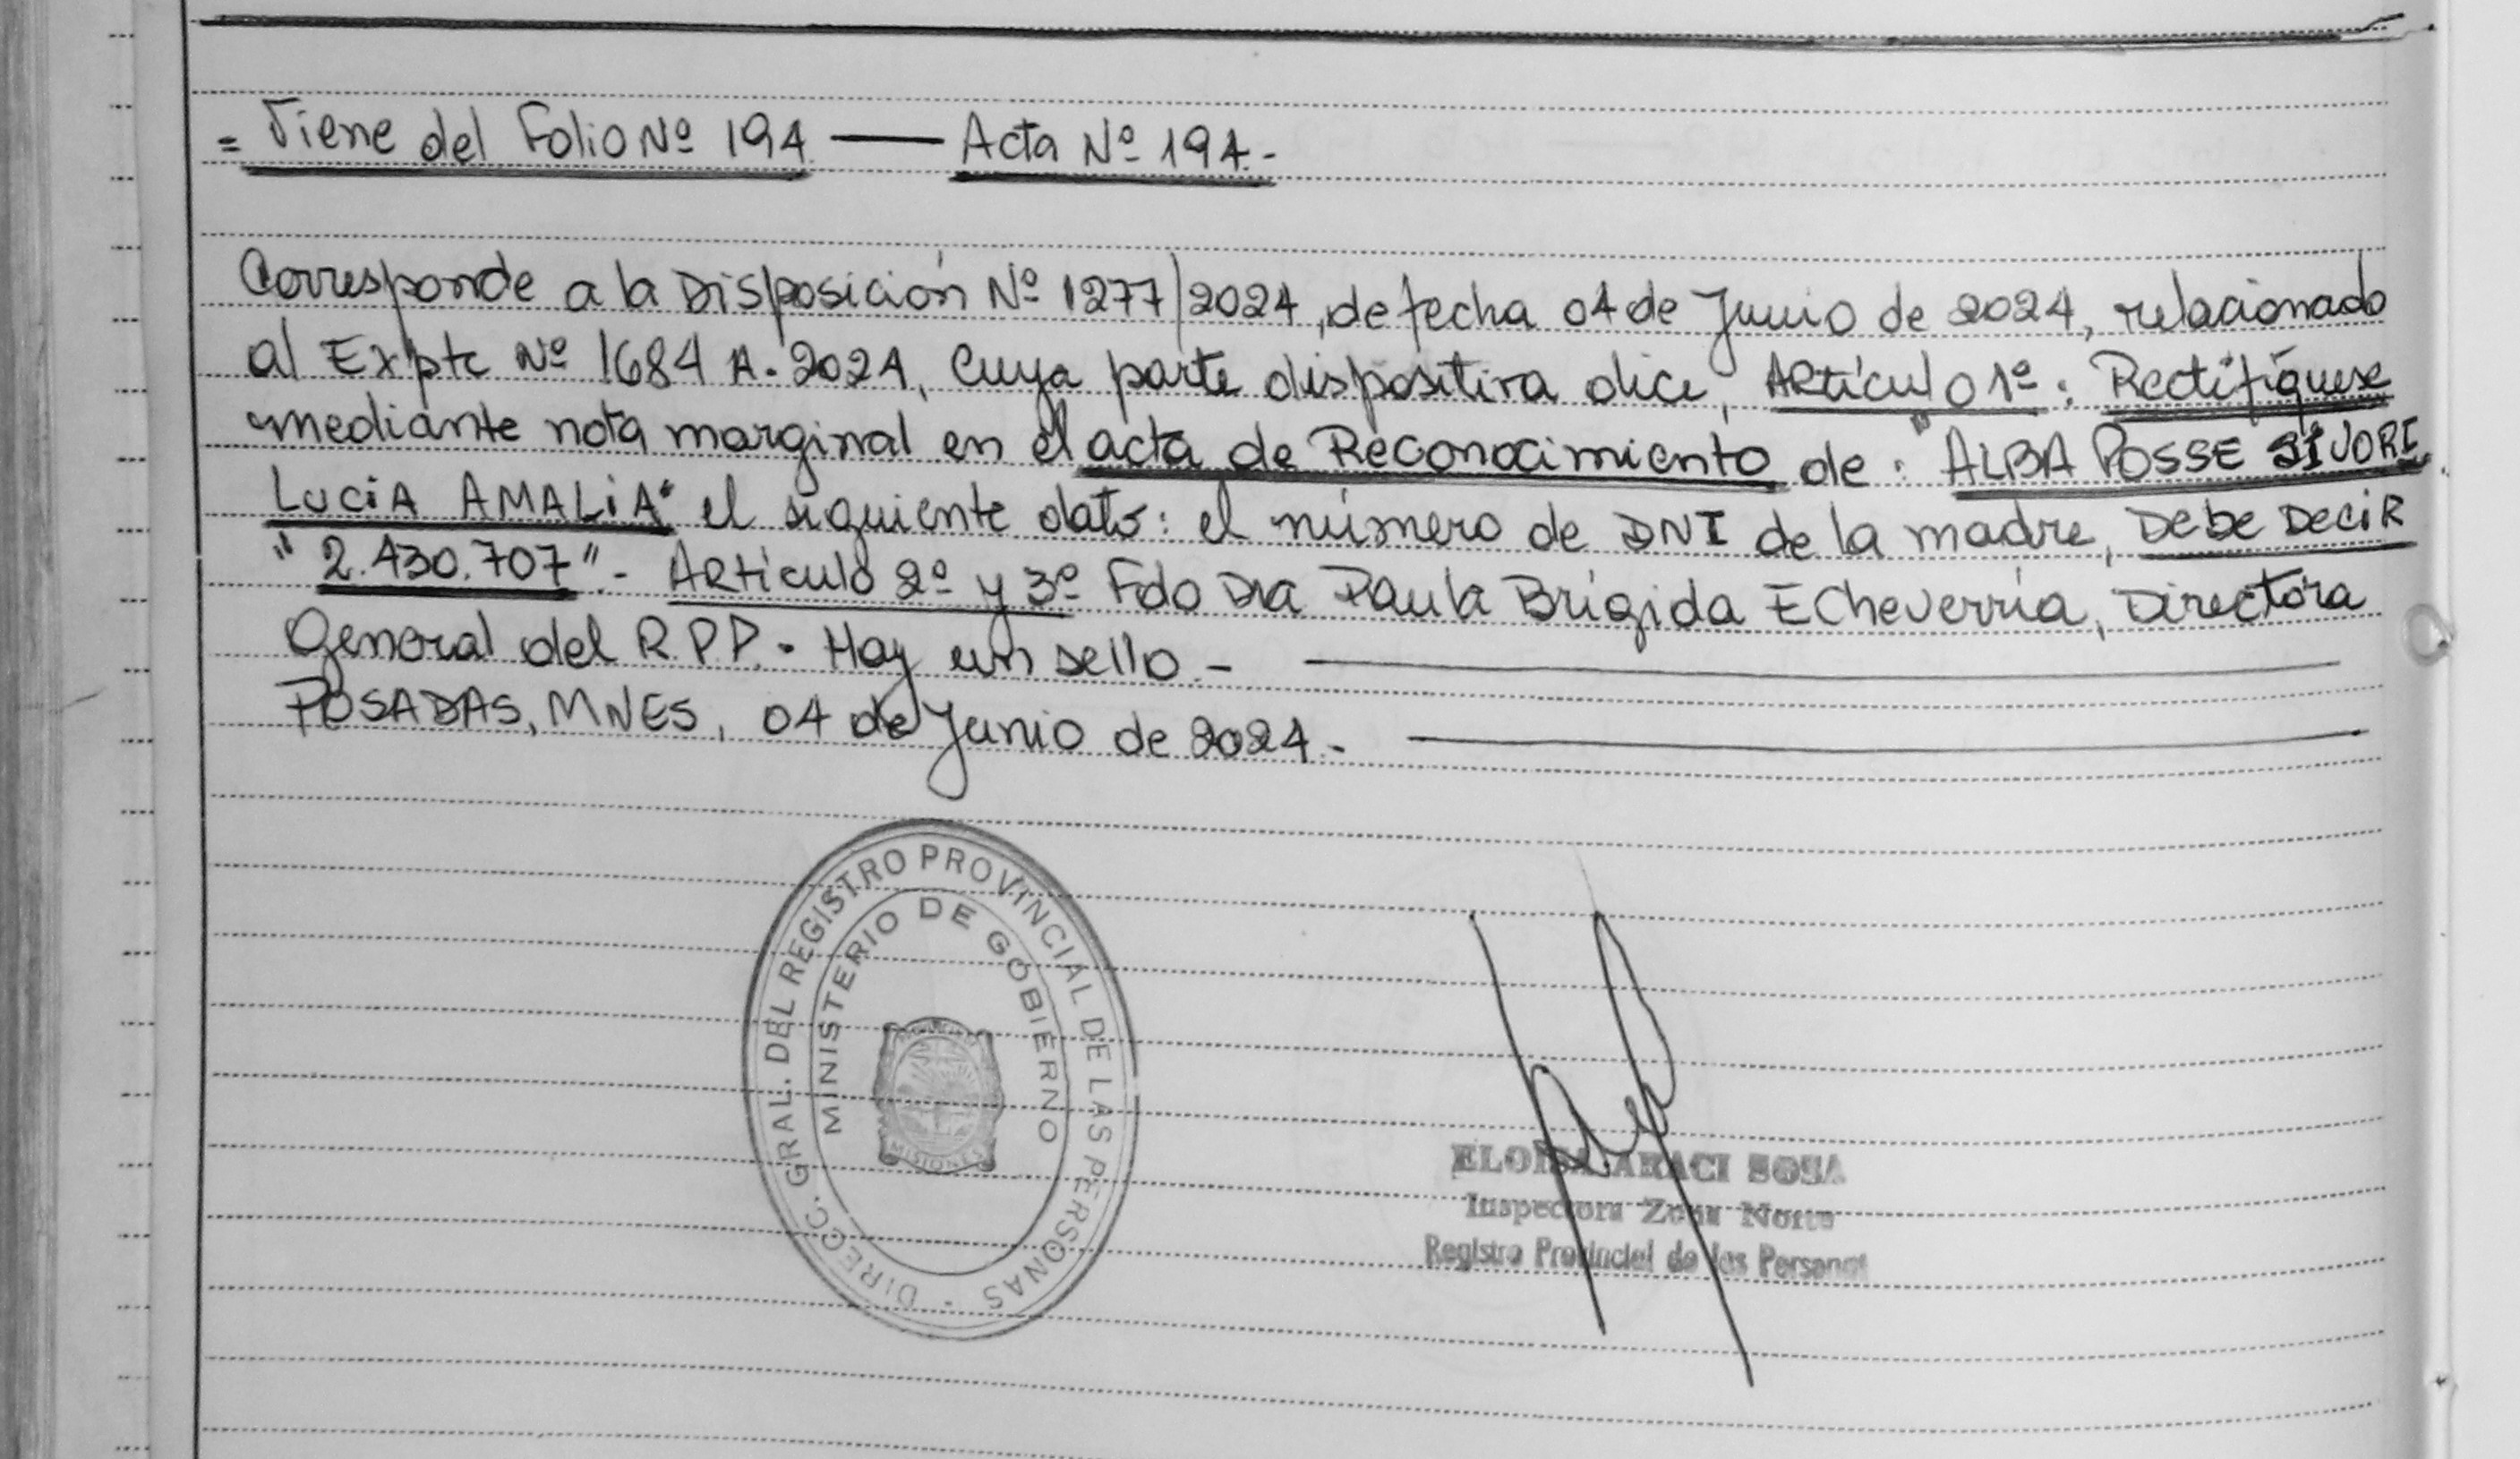 = Viene del Folio Nº 194 — Acta Nº 194.-
Corresponde a la Disposición Nº 1277/2024, de fecha 04 de Junio de 2024, relacionado
al Expte Nº 1684 A-2024, cuya parte dispositiva dice, Artículo 1º: Rectifíquese
mediante nota marginal en el acta de Reconocimiento de: "ALBA POSSE SIVORI
LUCIA AMALIA" el siguiente dato: el número de DNI de la madre, DEBE DECIR
"2.430.707".- Artículo 2º y 3º Fdo Dra Paula Brígida Echeverría, Directora
General del R.P.P.- Hay un sello.-
POSADAS, MNES, 04 de Junio de 2024.-
DIRECC. GRAL. DEL REGISTRO PROVINCIAL DE LAS PERSONAS
MINISTERIO DE GOBIERNO
MISIONES
ELOISA ARACI SOSA
Inspectora Zona Norte
Registro Provincial de las Personas